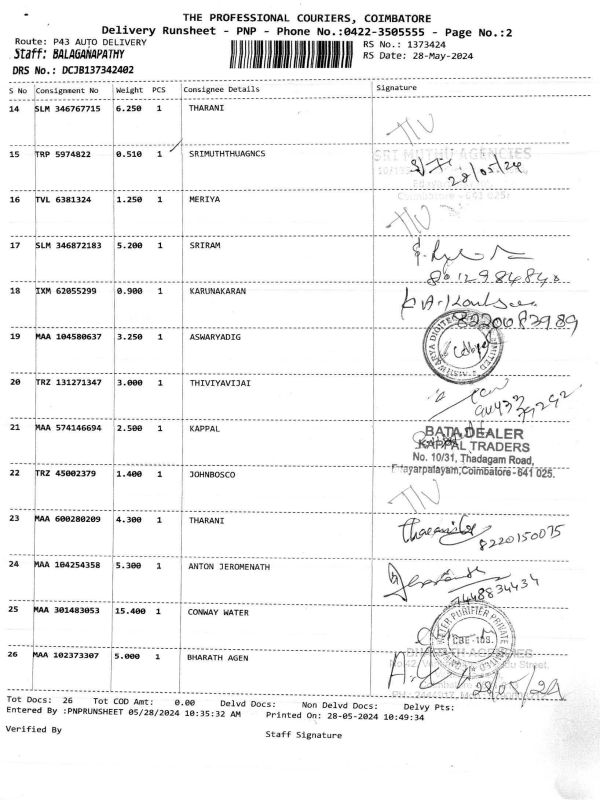 THE PROFESSIONAL COURIERS, COIMBATORE
Delivery Runsheet - PNP - Phone No.:0422-3505555 - Page No.:2
Route: P43 AUTO DELIVERY
RS No.: 1373424
Staff: BALAGANAPATHY
RS Date: 28-May-2024
DRS No.: DCJB137342402
S No Consignment No Weight PCS Consignee Details Signature
14 SLM 346767715 6.250 1 THARANI
15 TRP 5974822 0.510 1 SRIMUTHTHUAGNCS
SRI MUTHU AGENCIES
28/05/24
16 TVL 6381324 1.250 1 MERIYA
17 SLM 346872183 5.200 1 SRIRAM
18 IXM 62055299 0.900 1 KARUNAKARAN
8220083989
19 MAA 104580637 3.250 1 ASWARYADIG
20 TRZ 131271347 3.000 1 THIVIYAVIJAI
21 MAA 574146694 2.500 1 KAPPAL
BATA DEALER
KAPPAL TRADERS
No. 10/31, Thadagam Road,
Coimbatore - 641 025.
22 TRZ 45002379 1.400 1 JOHNBOSCO
23 MAA 600280209 4.300 1 THARANI
8220150075
24 MAA 104254358 5.300 1 ANTON JEROMENATH
7448834434
25 MAA 301483053 15.400 1 CONWAY WATER
26 MAA 102373307 5.000 1 BHARATH AGEN
28/05/24
Tot Docs: 26 Tot COD Amt: 0.00 Delvd Docs: Non Delvd Docs: Delvy Pts:
Entered By :PNPRUNSHEET 05/28/2024 10:35:32 AM Printed On: 28-05-2024 10:49:34
Verified By
Staff Signature